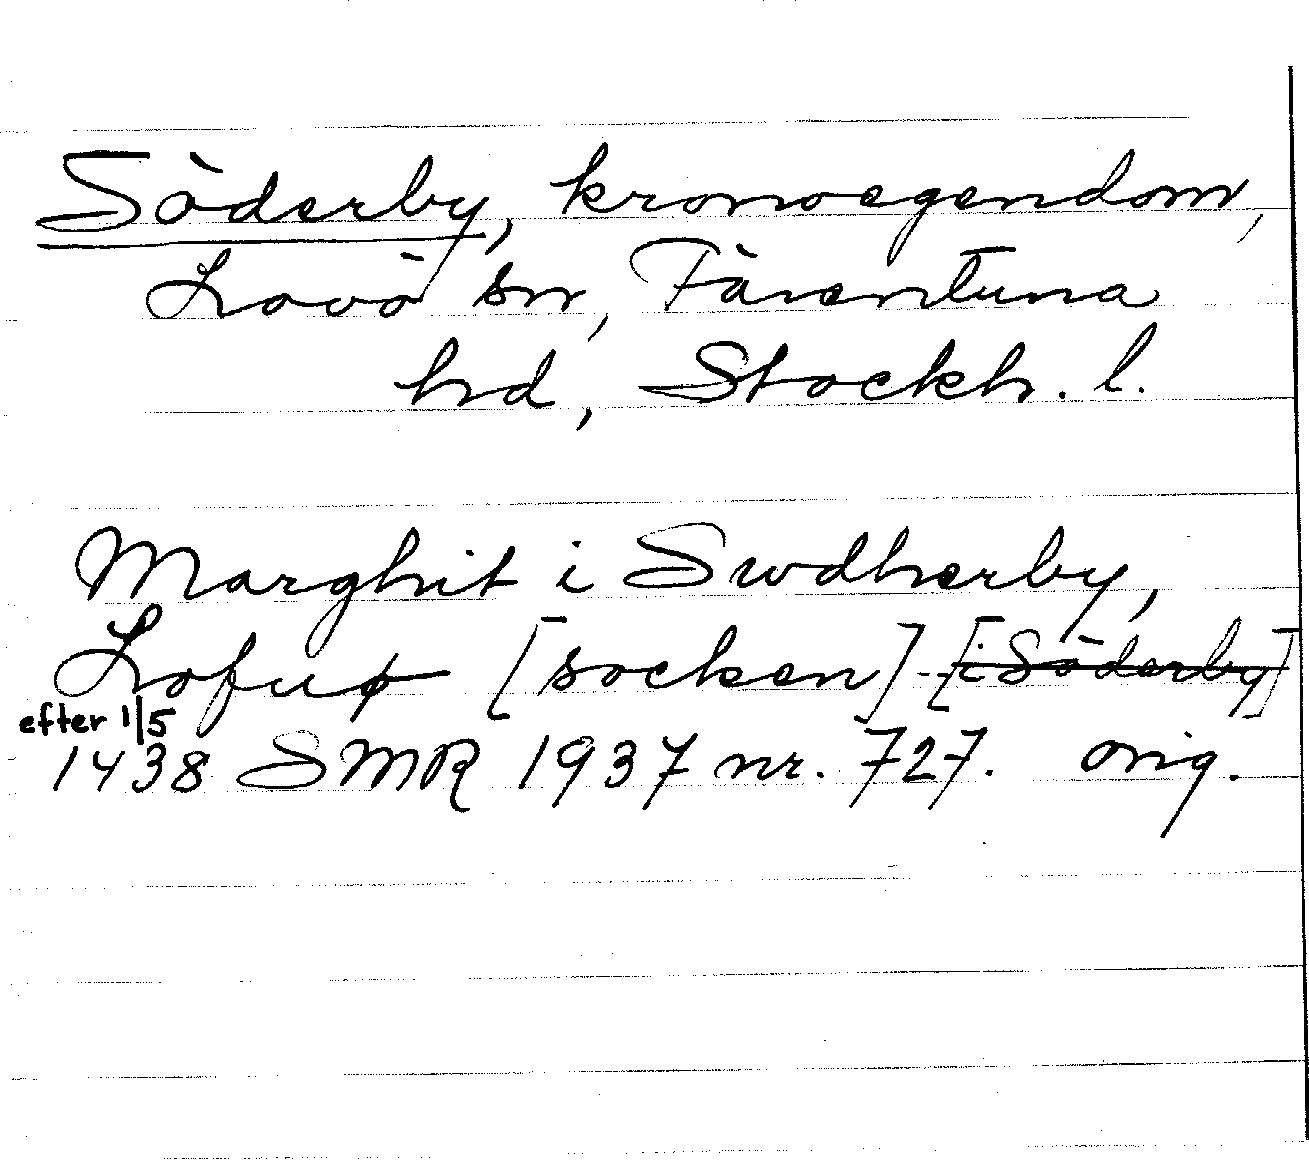 Söderby, kronoegendom,
Lovö sn, Färentuna
hd, Stockh. l.
Marghit i Swdherby,
Lofuø [socken] [i Söderby]
efter 1/5
1438 SMR 1937 nr. 727. orig.